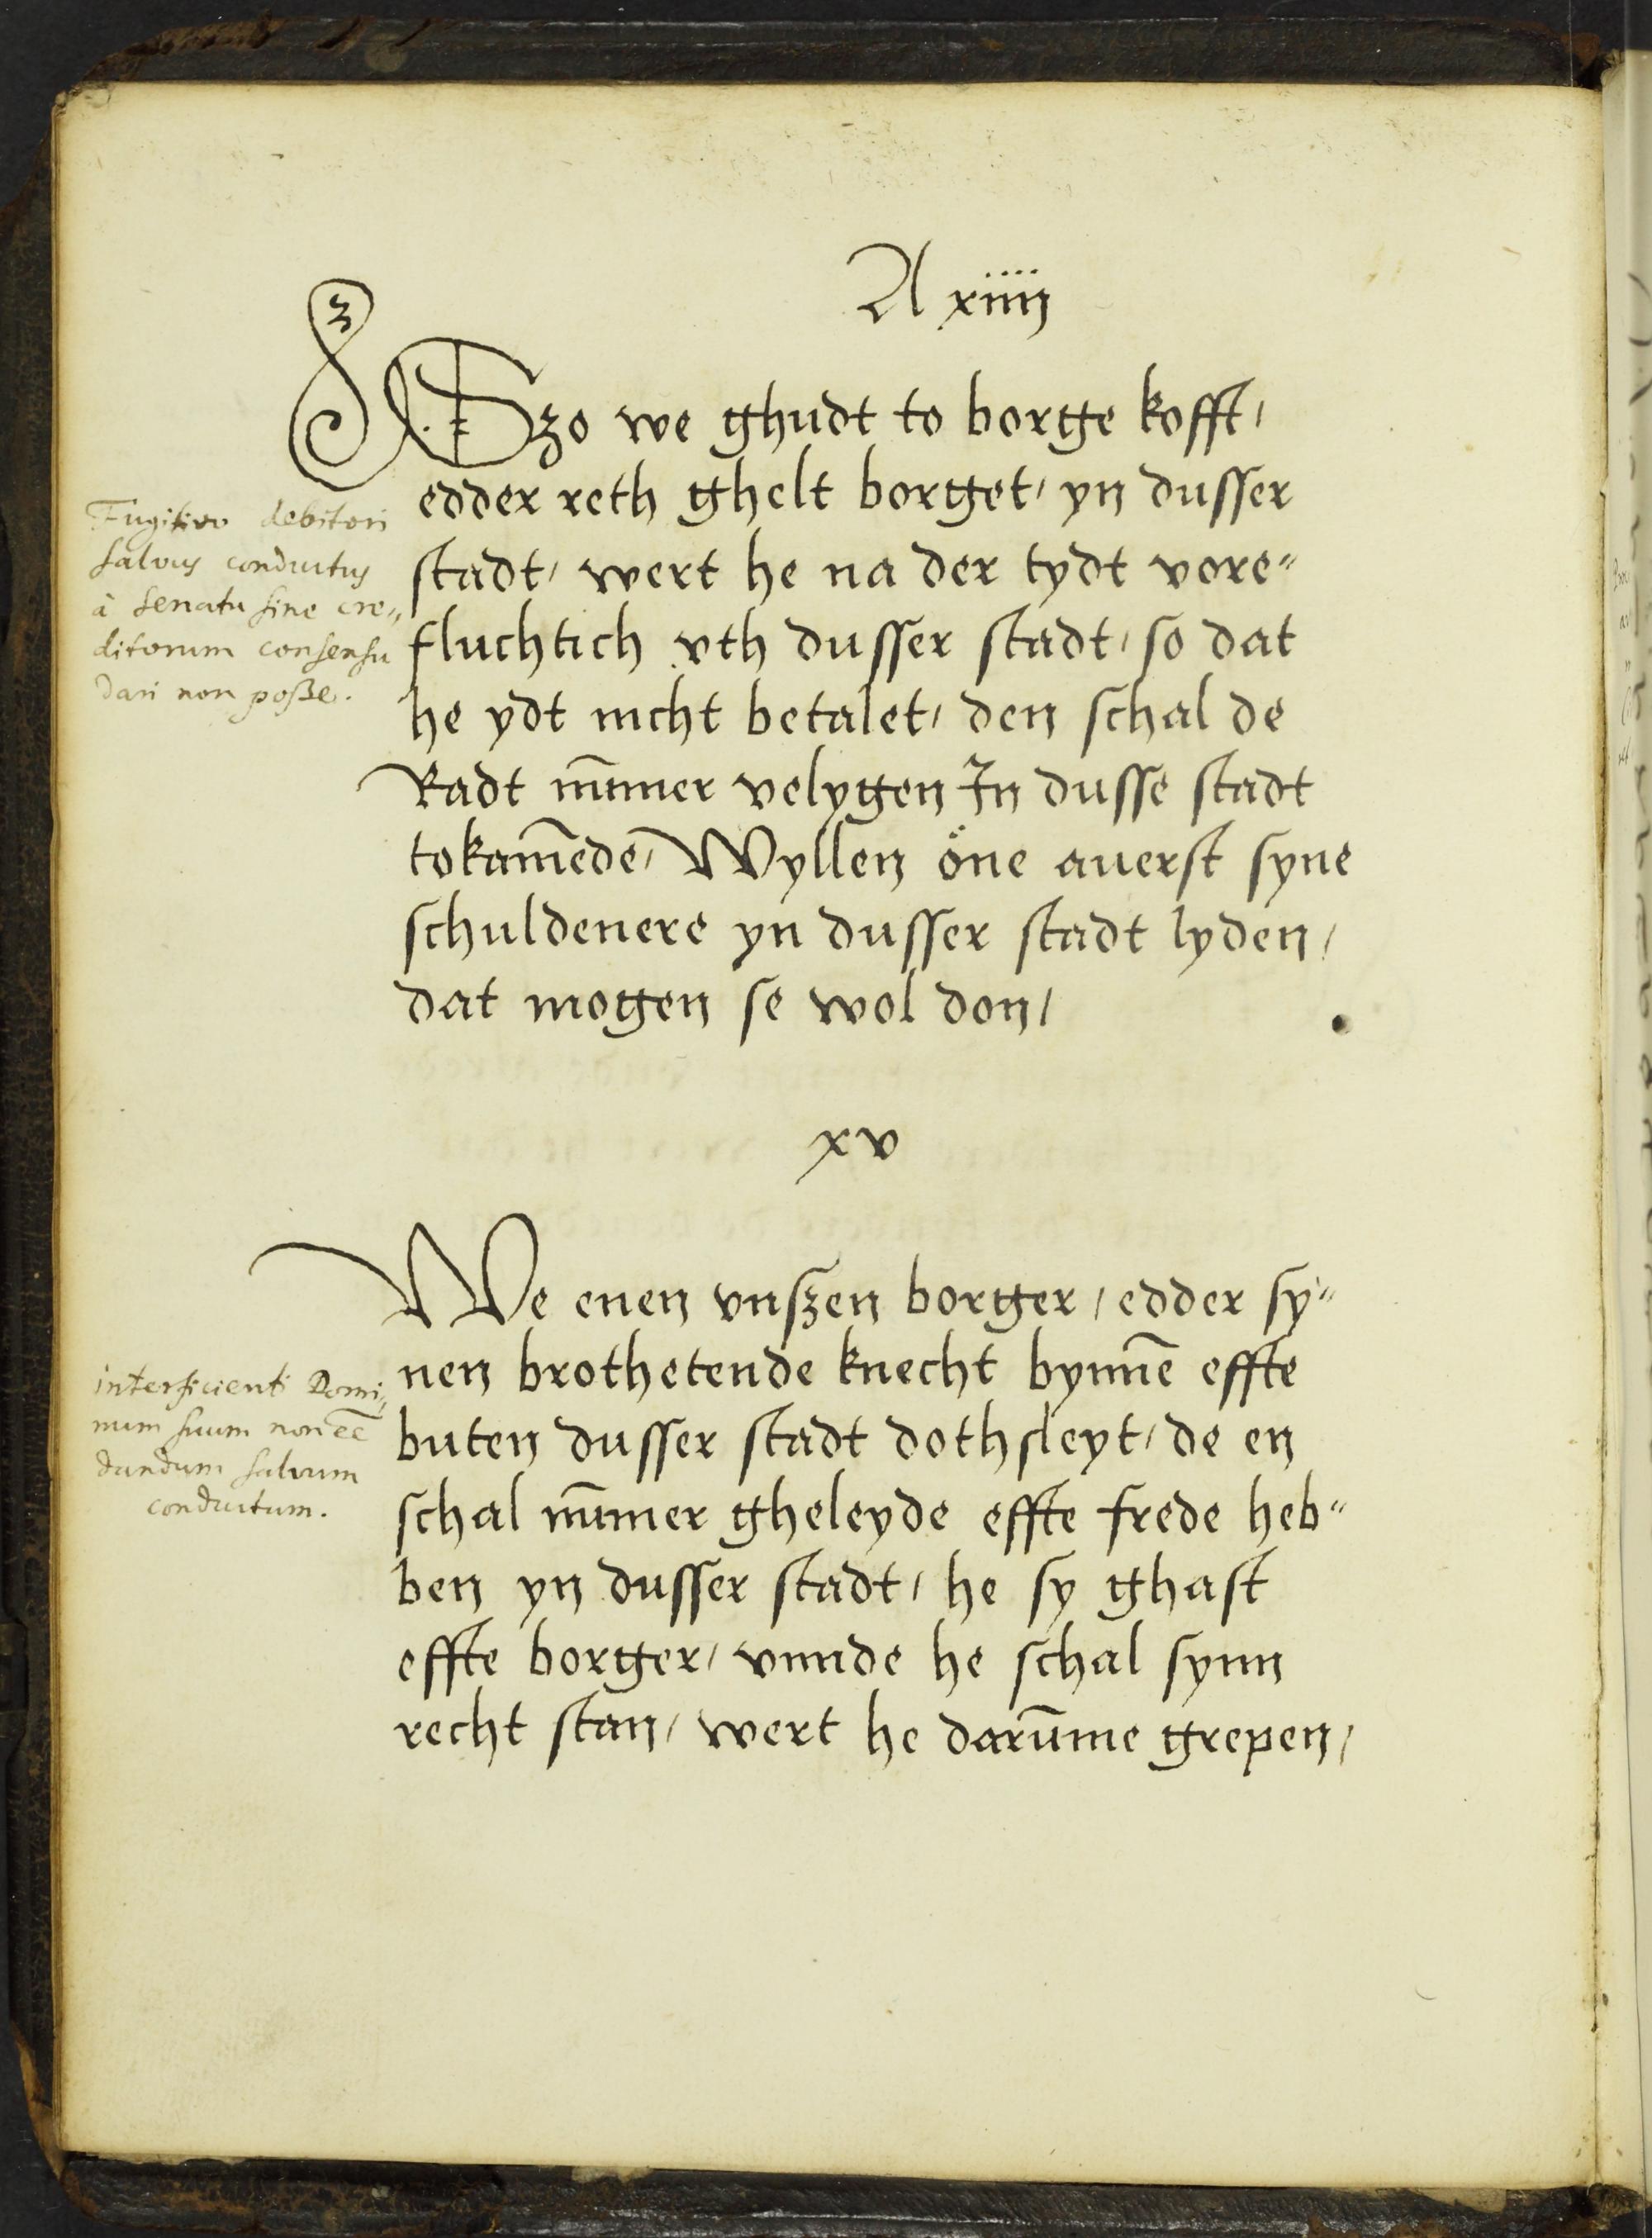 A xiiij
Szo we ghudt to borge kofft,
edder reth ghelt borget, yn dusser
stadt, wert he na der tydt vore"
fluchtich vth dusser stadt, so dat
he ydt nicht betalet, den schal de
Radt nūmer velygen In dusse stadt
tokamēde, Wyllen öne auerst syne
schuldenere yn dusser stadt lyden,
dat mogen se wol don,
Fugitivo debitori
salvus conductus
à senatu sine cre„
ditorum consensu
dari non poße.
xv
We enen vnszen borger, edder sy"
nen brothetende knecht bynnē effte
buten dusser stadt dothsleyt, de en
schal nūmer gheleyde effte frede heb"
ben yn dusser stadt, he sy ghast
effte borger, vnnde he schal synn
recht stan, wert he darūme grepen,
interficienti Domi„
num suum non eē
dandum salvum
conductum.